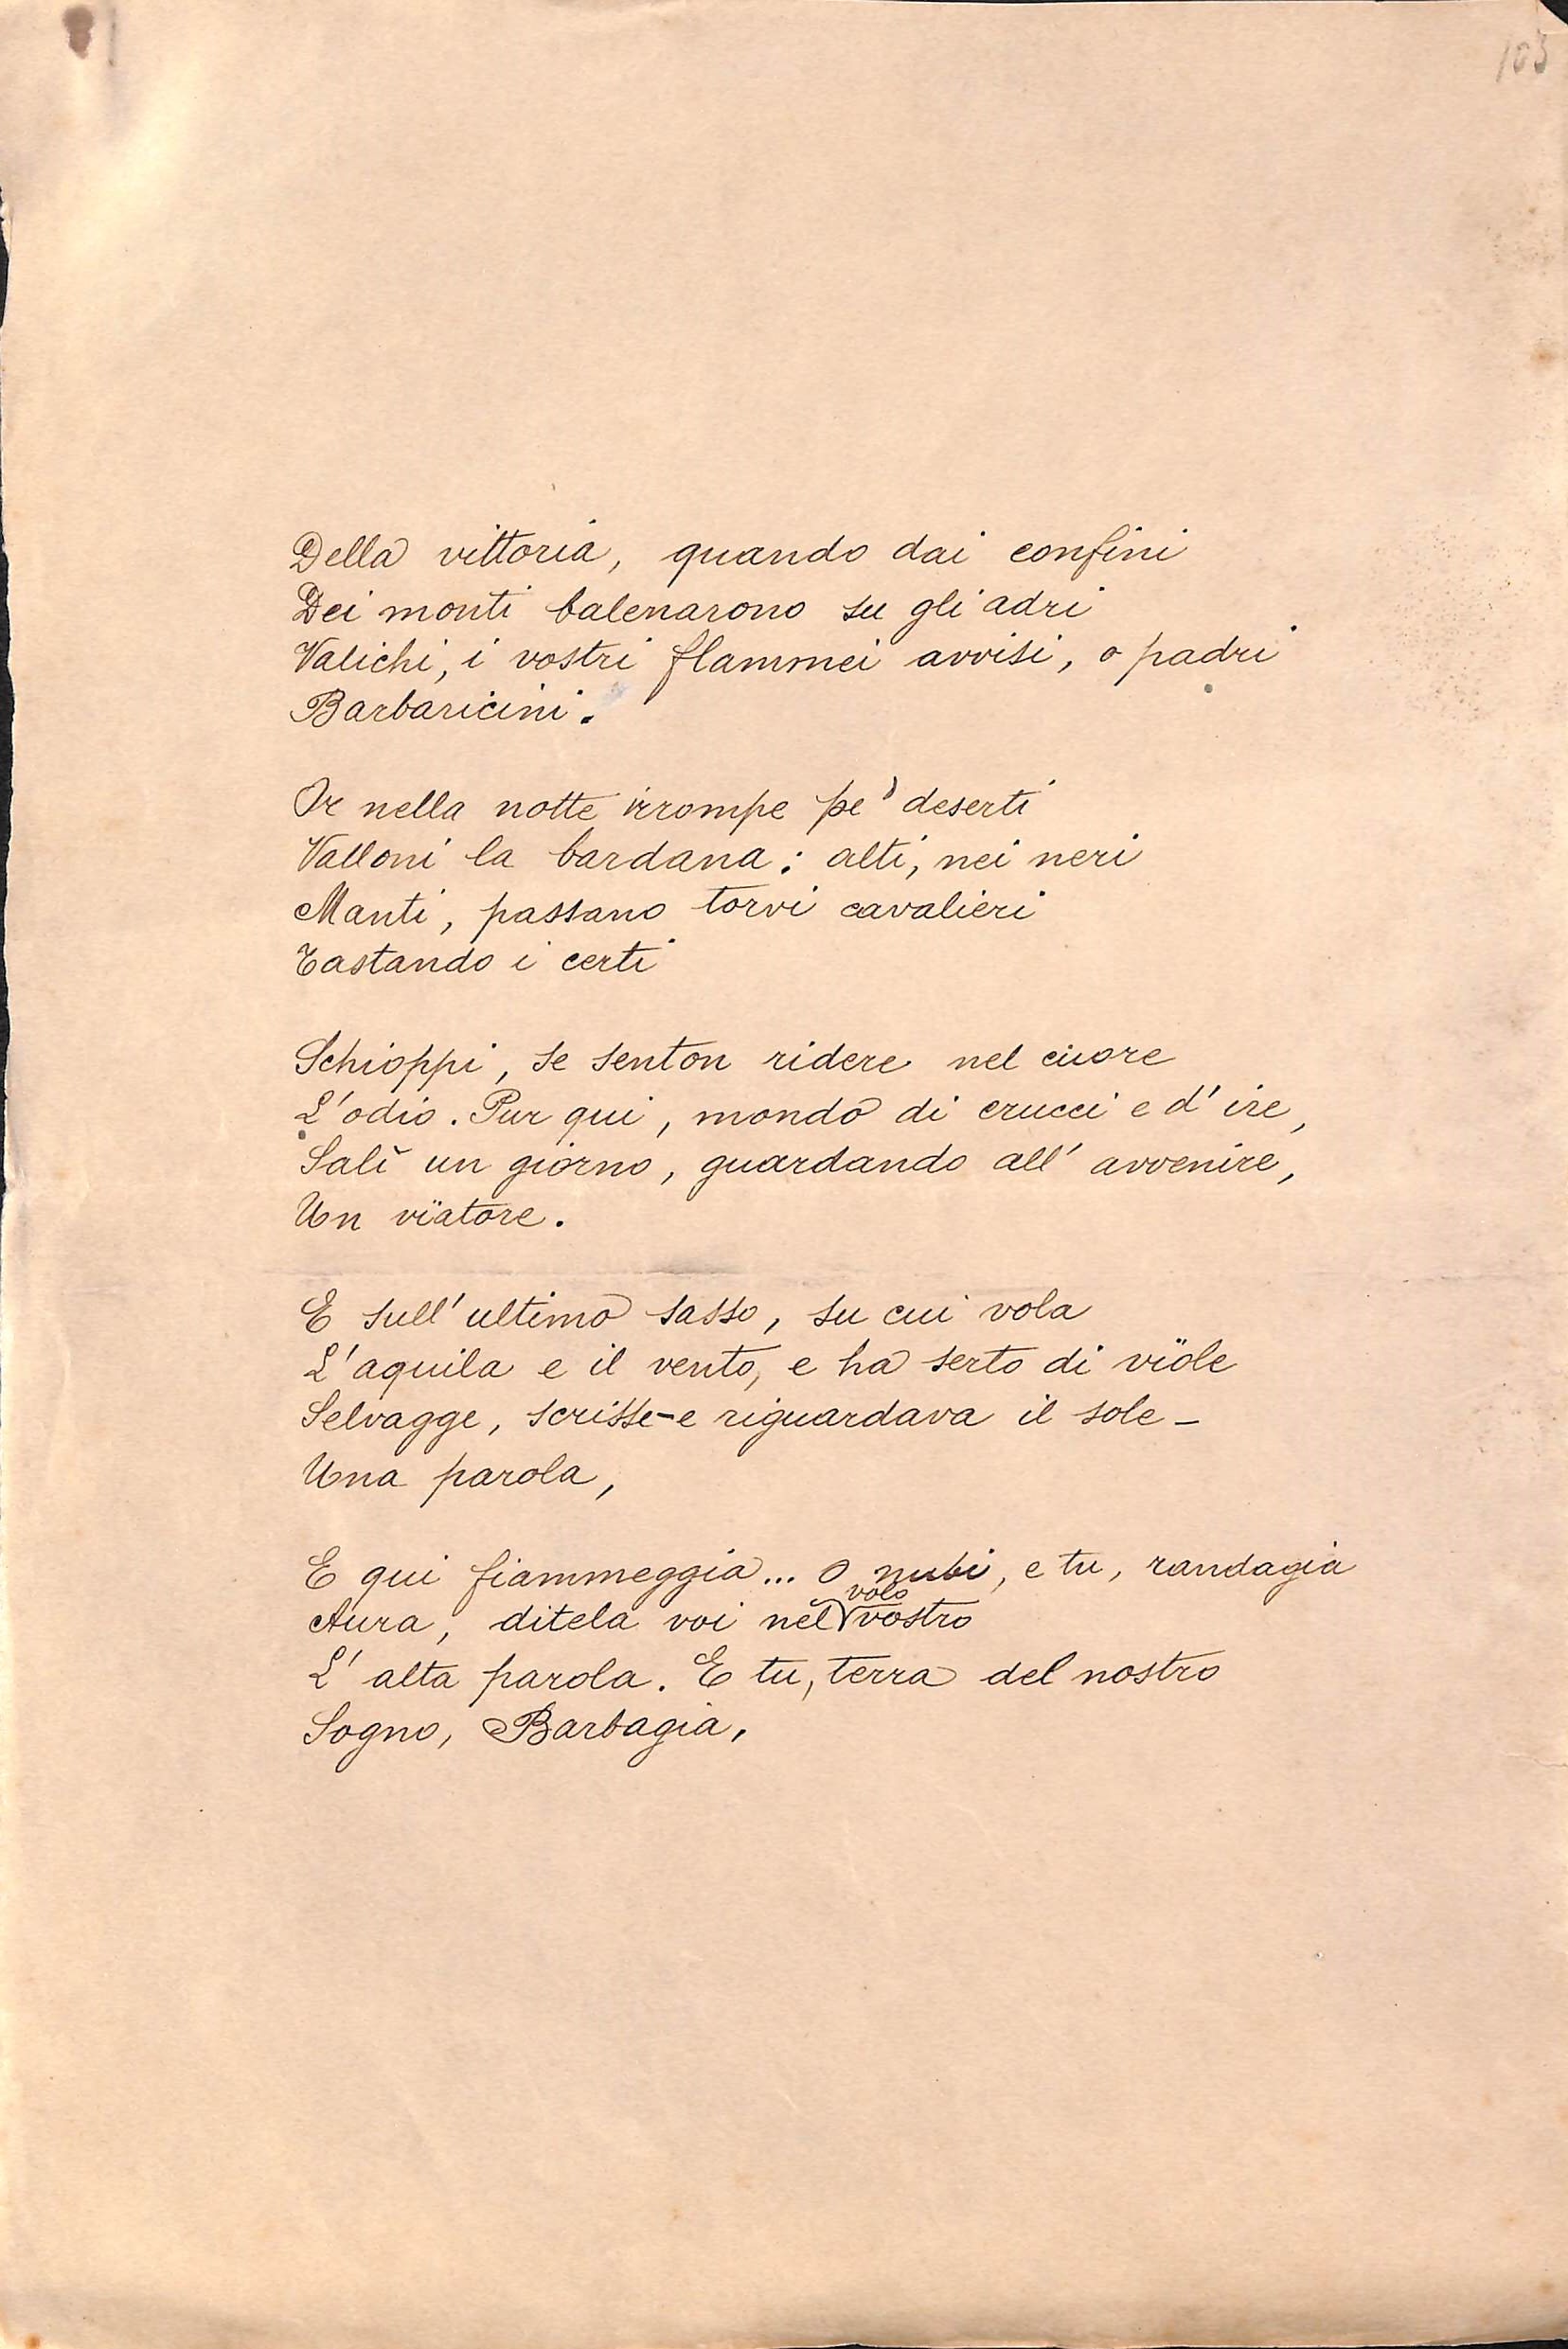 103
Della vittoria, quando dai confini
Dei monti balenarono su gli adri
Valichi, i vostri flammei avvisi, o padri
Barbaricini.
Or nella notte irrompe pe' deserti
Valloni la bardana: alti, nei neri
Manti, passano torvi cavalieri
Tastando i certi
Schioppi, se senton ridere nel cuore
L'odio. Pur qui, mondo di crucci e d'ire,
Salì un giorno, guardando all'avvenire,
Un vïatore.
E sull'ultimo sasso, su cui vola
L'aquila e il vento, e ha serto di vïole
Selvagge, scrisse-e riguardava il sole-
Una parola,
E qui fiammeggia... O nubi, e tu, randagia
Aura, ditela voi nel volo vostro
L'alta parola. E tu, terra del nostro
Sogno, Barbagia,